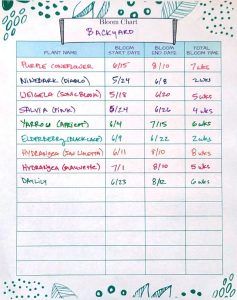 Bloom Chart
BACKYARD
PLANT NAME BLOOM START DATE BLOOM END DATE TOTAL BLOOM TIME
PURPLE CONEFLOWER 6/15 8/10 7 WKS
NINEBARK (DIABLO) 5/24 6/8 2 WKS
WEIGELA (SONIC BLOOM) 5/18 6/20 5 WKS
SALVIA (PINK) 5/24 6/22 4 WKS
YARROW (APRICOT) 6/4 7/15 6 WKS
ELDERBERRY (BLACK LACE) 6/9 6/22 2 WKS
HYDRANGEA 6/11 8/10 8 WKS
HYDRANGEA 7/1 8/10 5 WKS
DAYLILY 6/23 8/12 6 WKS